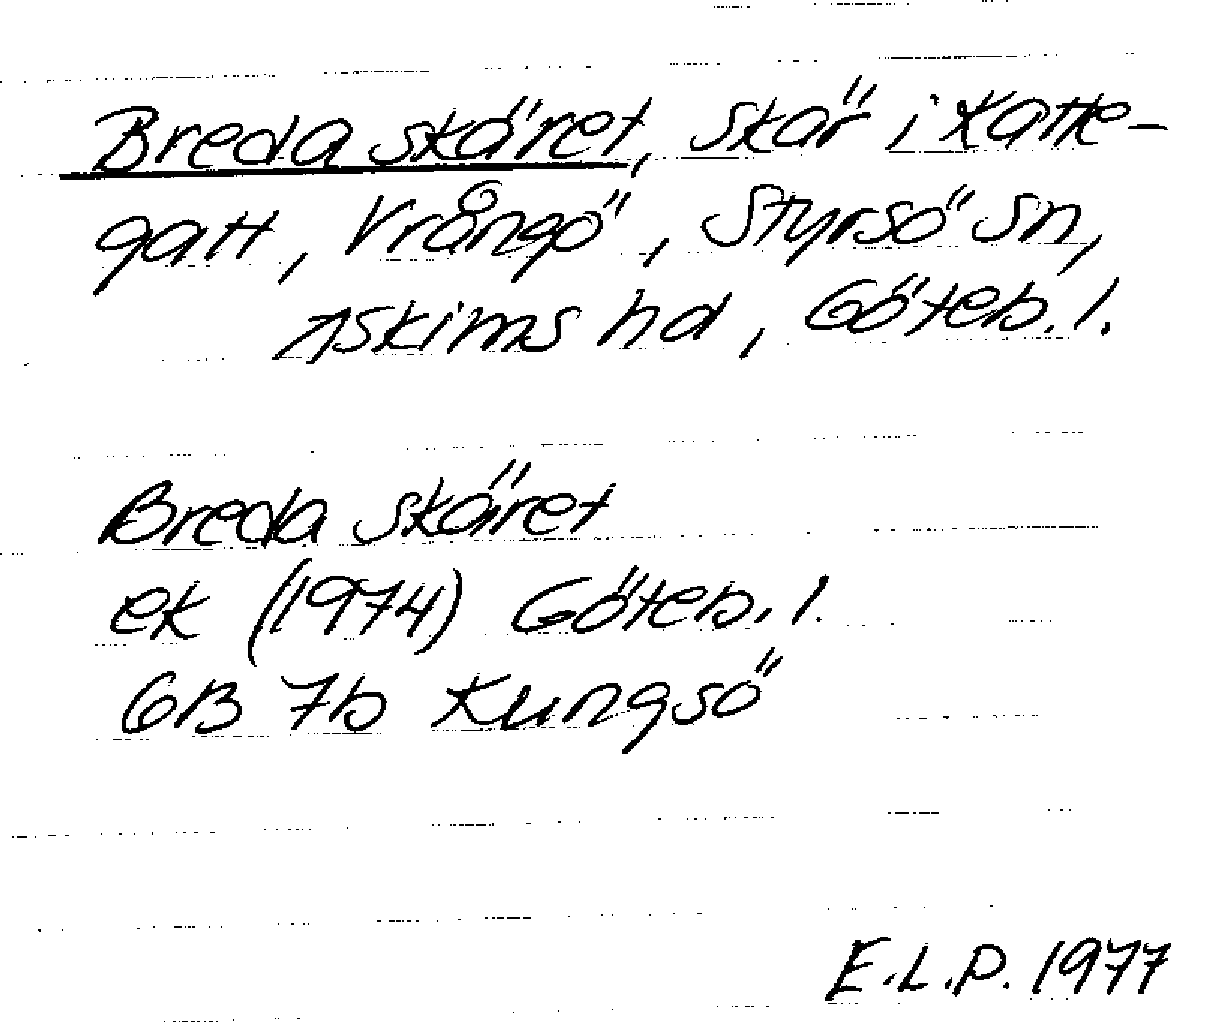 Breda skäret, skär i Katte-
gatt, Vrångö, Styrsö sn,
Askims hd, Göteb. l.
Breda skäret
ek (1974) Göteb. l.
6B 7b Kungsö
E.L.P. 1977